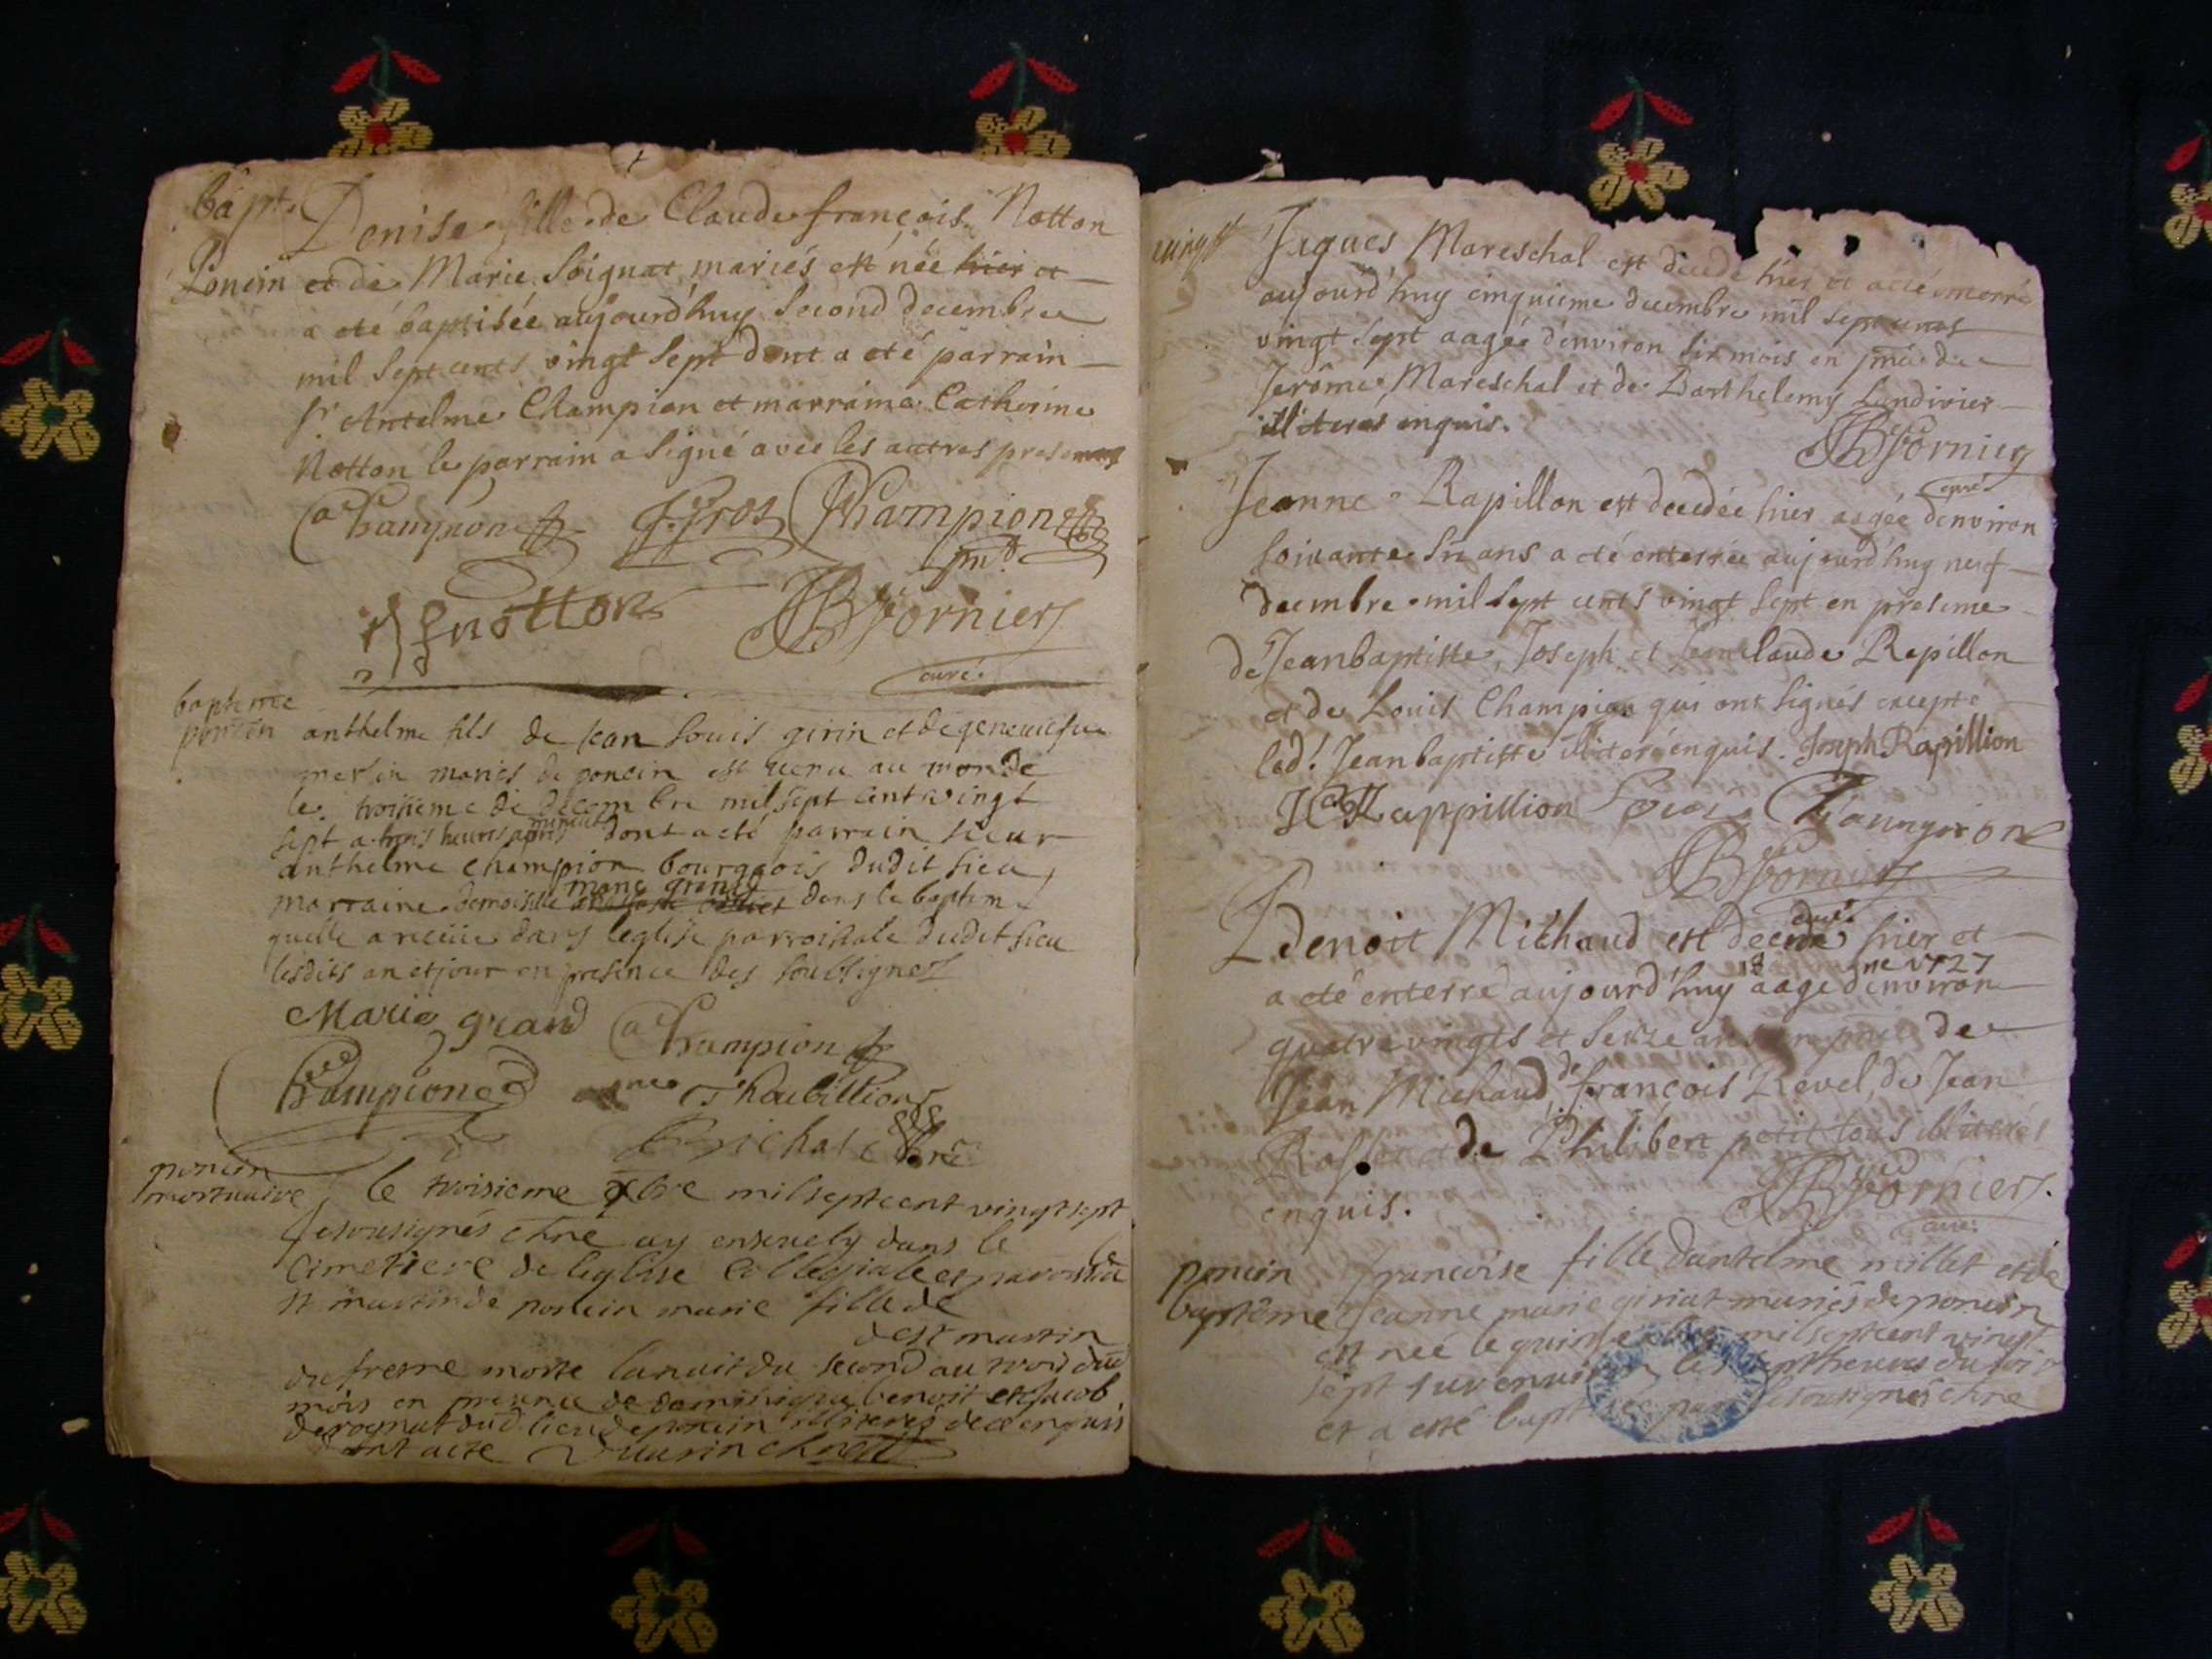 bapt.
Poncin
Denise fille de Claude françois Notton
et de Marie Soignat mariés est née hier et
a eté baptisée aujourd'huy second decembre
mil sept cents vingt sept dont a eté parrain
Sr Antelme Champion et marraine Catherine
Notton le parrain a signé avec les autres presents
Champion Gros Champion
notton JB fornier
curé
bapteme
poncin
anthelme fils de jean louis girin et de geneviefve
merlin mariés de poncin est venu au monde
le troisieme de decembre mil sept cent vingt
sept a trois heures apres minuit dont a eté parrain sieur
anthelme champion bourgeois dudit lieu
marraine demoiselle marie grand dans le baptem
quelle a receüe dans leglise parroissiale dudit lieu
lesdits an et jour en presence des soussignes
Marie grand Champion
Champion Thoubillion
Brichat
poncin
mortuaire
le troisieme xbre mil sept cent vingt sept
je sousignés chne ay ensevely dans le
cimetiere de leglise collegiale et
st martin de poncin marie fille de
de st martin
du fresne morte la nuit du second au trois dud
mois en presence de benoit et jacob
derognat dud lieu de poncin illiteres de enquis
dont acte
Jaques Mareschal est decede hier et a eté enterré
aujourd'huy cinquieme decembre mil sept cents
vingt sept aagé d'environ six mois en pnce de
Jerôme Mareschal et de Barthelemy Landivier
illiteres enquis.
JB fornier
curé
Jeanne Rapillon est decedée hier aagée d'environ
soixante six ans a eté enterrée aujourd'huy neuf
decembre mil sept cents vingt sept en presence
de Jeanbaptiste, Joseph et Jeanclaude Rapillon
et de Louis Champion qui ont signés excepté
led. Jeanbaptiste illiteré enquis. Joseph Rapillion
Rappillion Louis Champion
JB fornier
curé
Benoit Michaud est decedé hier et
18 1727
a eté enterré aujourd'huy aagé d'environ
quatre vingts et seize ans en pnce de
Jean Michaud de françois Revel, de Jean
et de Philibert petit tous illiterés
enquis.
JB fornier
curé
poncin
baptême
francoise fille dantelme millet et de
jeanne marie giriat mariés de poncin
est née le quinze mil sept cent vingt
sept sur environ les sept heures du soir
et a esté baptisée par je sousignés chne